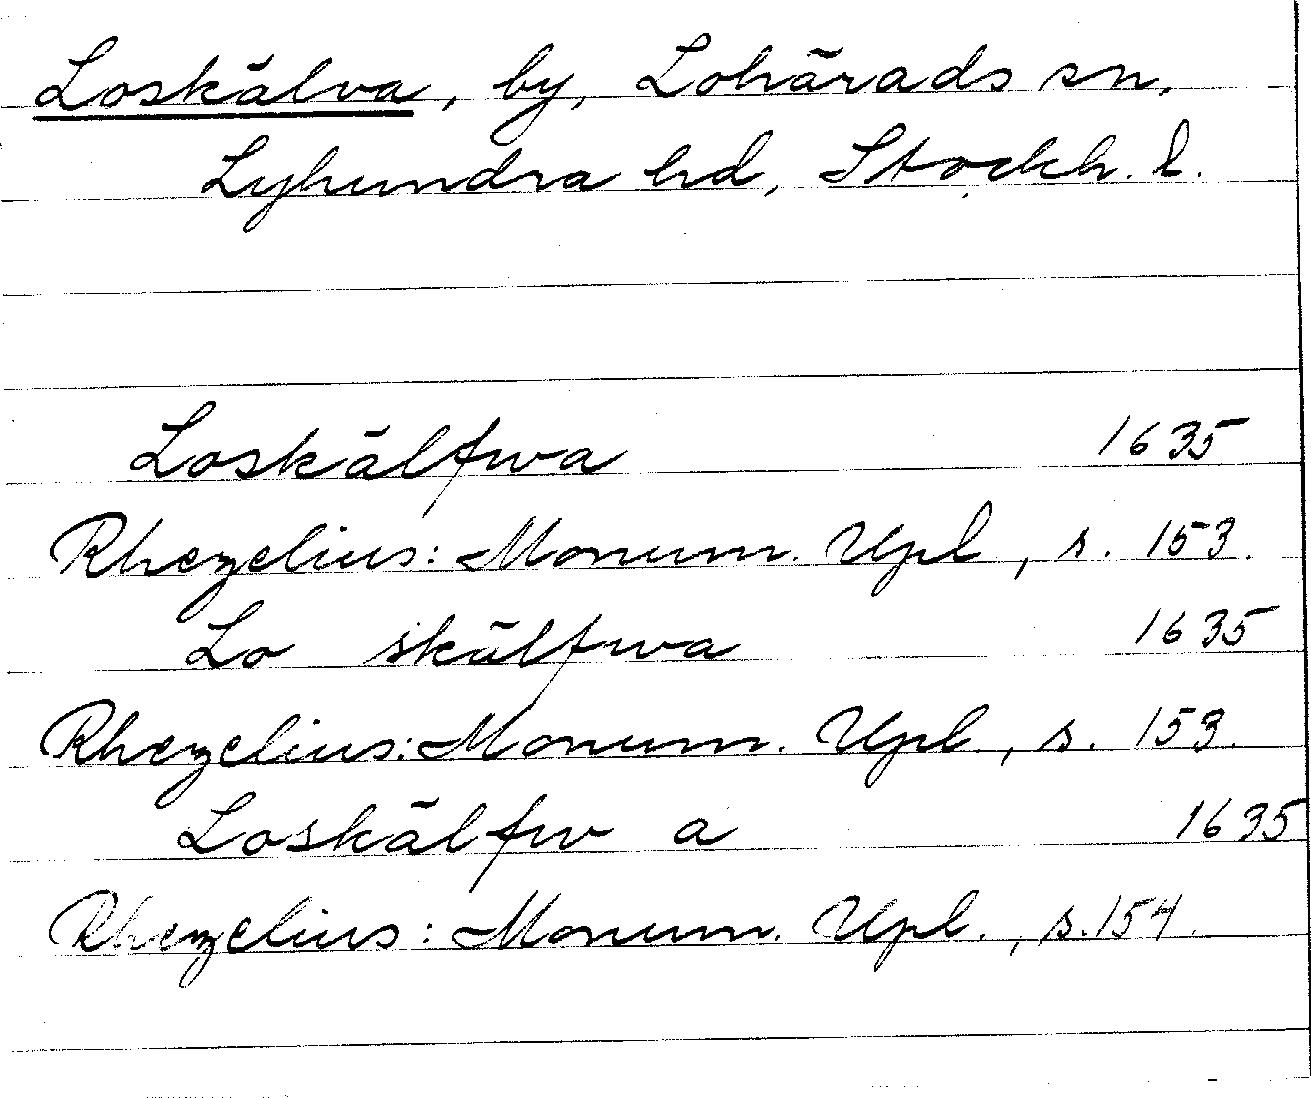 Loskälva, by, Lohärads sn,
Lyhundra hd, Stockh. l.
Loskälfwa 1635
Rhezelius: Monum. Upl, s. 153.
Lo skälfwa 1635
Rhezelius: Monum. Upl., s. 153.
Loskälfw a 1635
Rhezelius: Monum. Upl., s. 154.